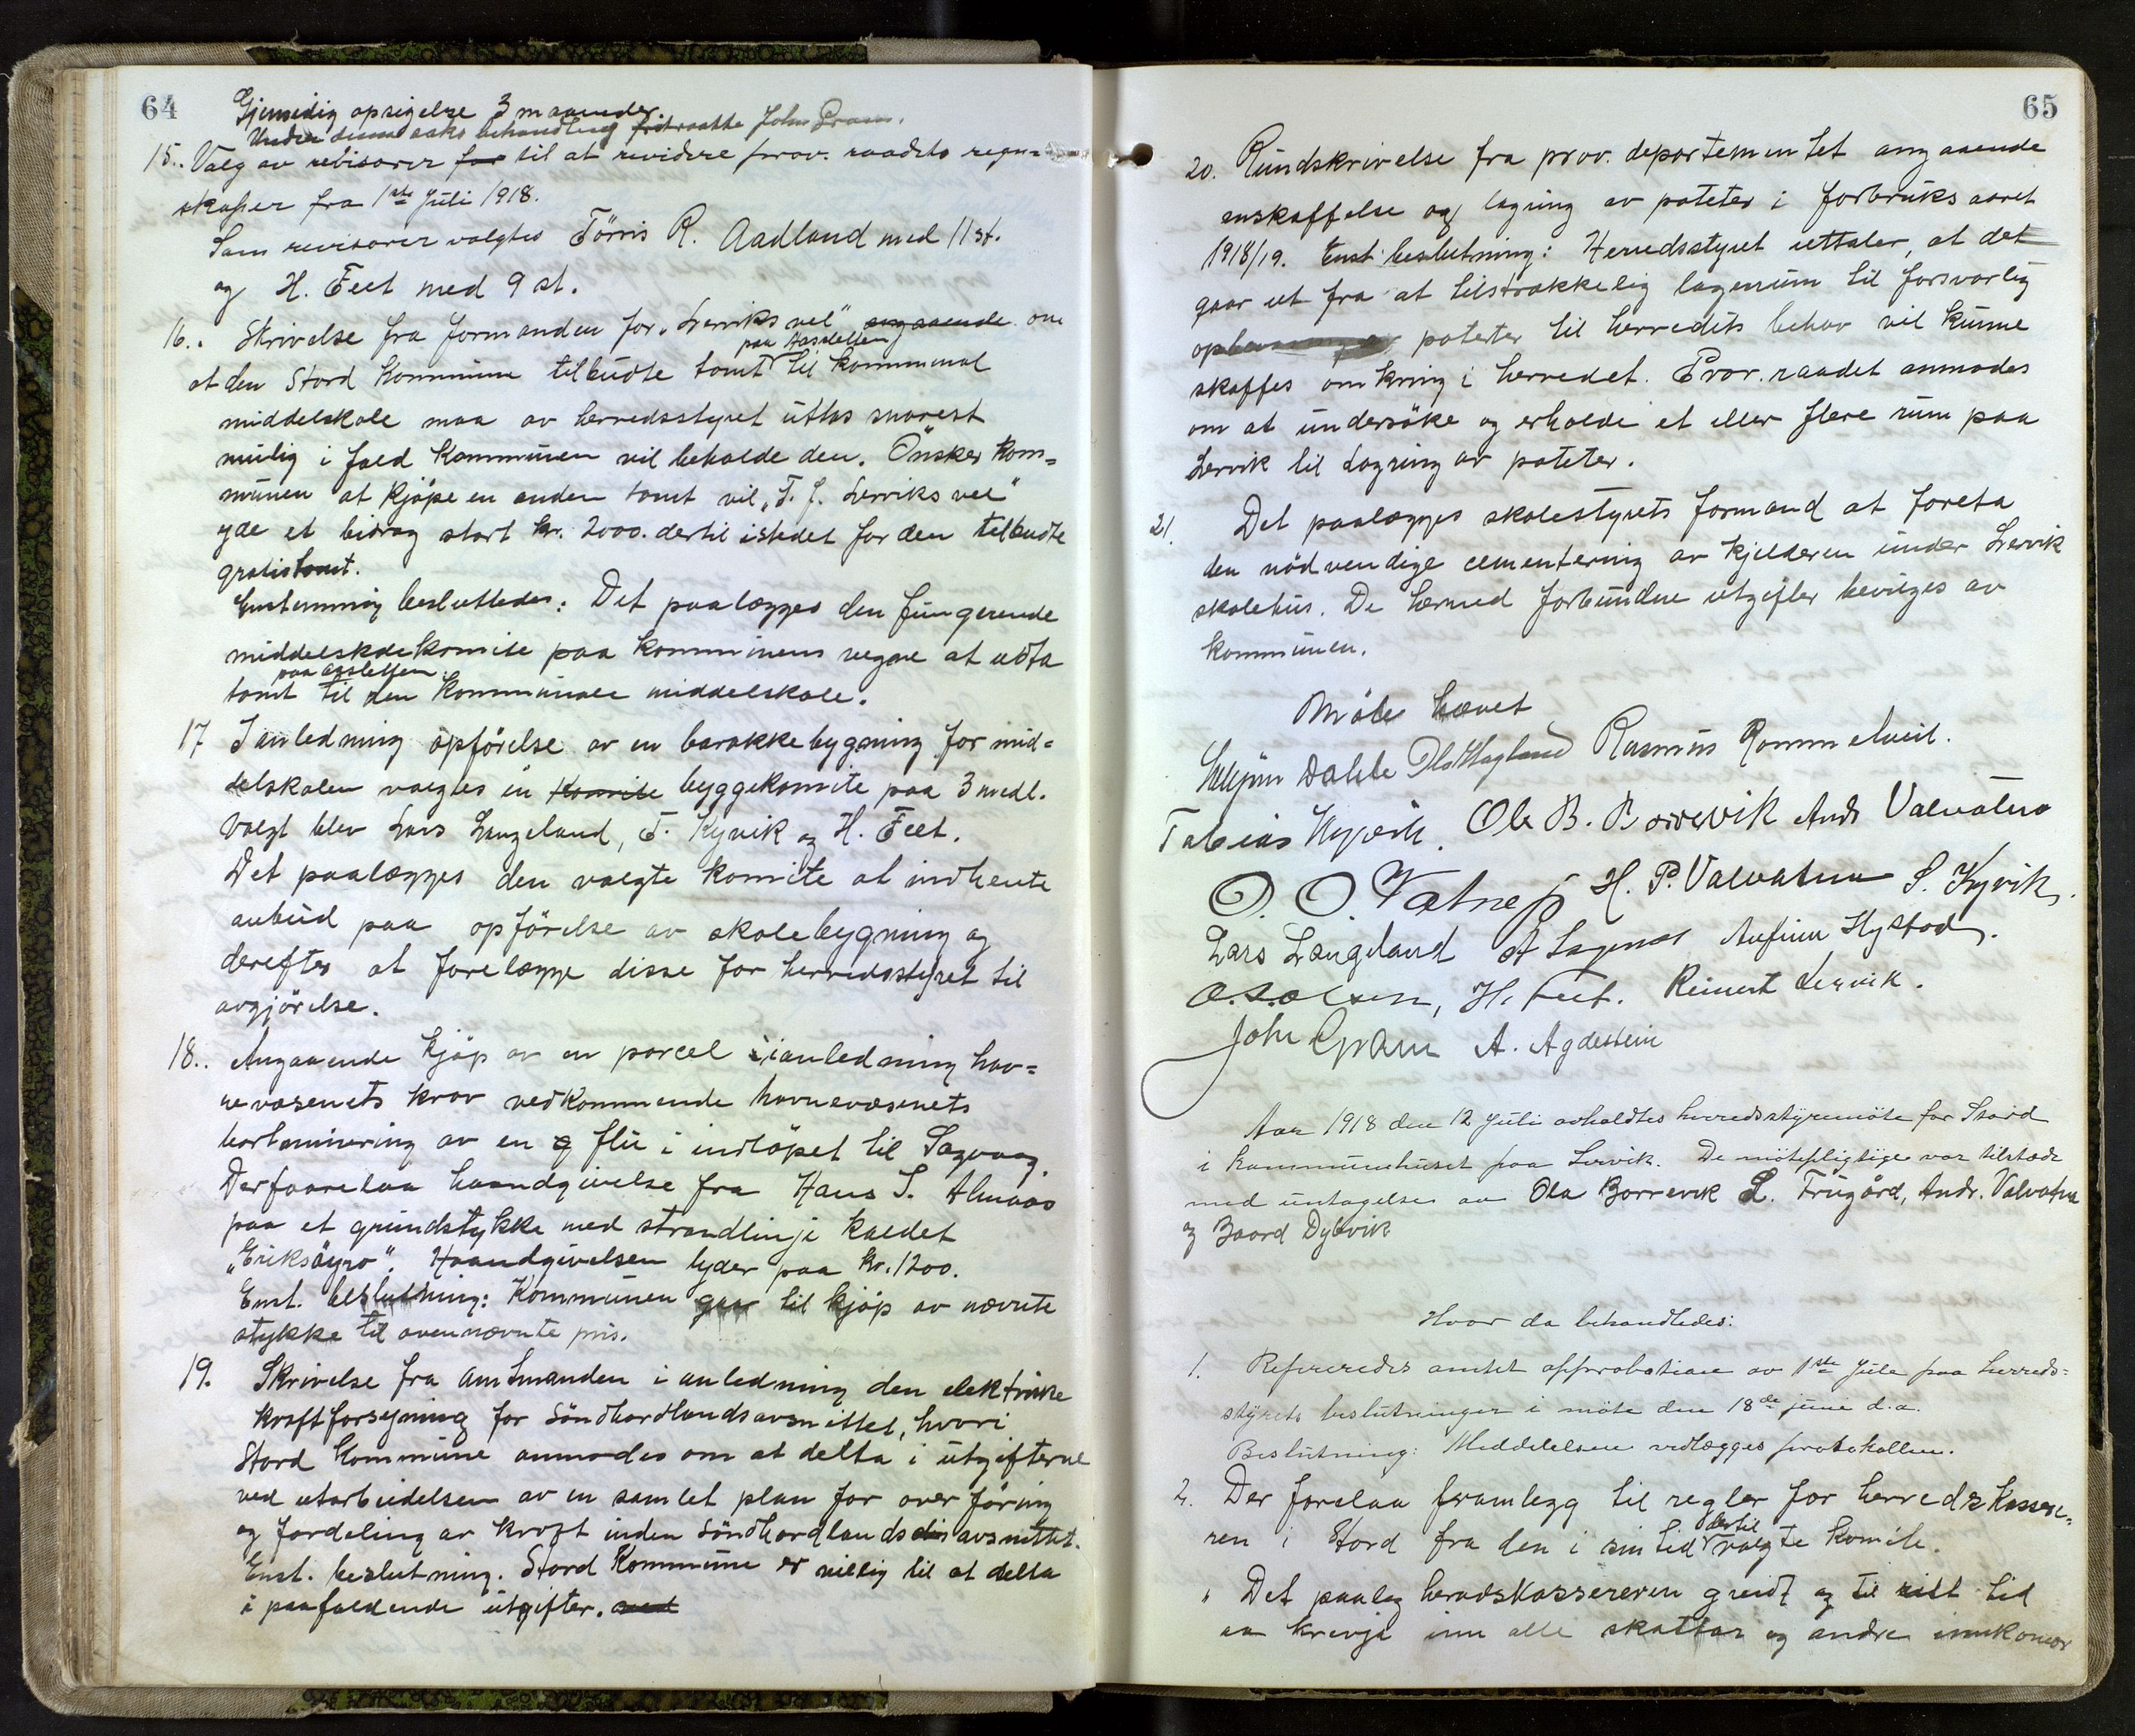 64
Gjensidig opsigelse 3 maaneder.
Under denne saks behandling fratraatte John Gram.
15. Valg av revisorer for til at revidere prov. raadets regn=
skaper fra 1ste Juli 1918.
Som revisorer valgtes Törris R. Aadland med 11 st.
og H. Feet med 9 st.
16. Skrivelse fra formanden for "Lerviks vel" angaaende om
paa Aasletten
at den Stord kommune tilbudte tomt til kommunal
middelskole maa av herredsstyret uttas snarest
mulig i fald kommunen vil beholde den. Önsker kom=
munen at kjöpe en anden tomt vil "F. f. Lerviks vel"
yde et bidrag stort kr. 2000. dertil istedet for den tilbudte
gratistomt.
Enstemmig besluttedes: Det paalægges den fungerende
middelskolekomite paa kommunens vegne at utta
paa Aasletten
tomt til den kommunale middelskole.
17 I anledning opförelse av en barakkebygning for mid=
delskolen valgtes en komite byggekomite paa 3 medl.
Valgt blev Lars Langeland, T. Kyvik og H. Feet.
Det paalægges den valgte komite at indhente
anbud paa opförelse av skolebygning og
derefter at forelægge disse for herredsstyret til
avgjörelse.
18. Angaaende kjöp av en parcel i anledning hav=
nevæsenets krav vedkommende havnevæsenets
bortminering av en flu i indlöpet til Sagvaag.
Der foorelaa haandgivelse fra Hans S. Almaas
paa et grundstykke med strandlinje kaldet
"Eriksöyro". Haandgivelsen lyder paa kr. 1200.
Enst. beslutning: Kommunen gaar til kjöp av nævnte
stykke til ovennævnte pris.
19. Skrivelse fra amtmanden i anledning den elektriske
kraftforsyning for Söndhordlandsavsnittet, hvori
Stord kommune anmodes om at delta i utgifterne
ved utarbeidelsen av en samlet plan for overföring
og fordeling av kraft inden Söndhordlands dis avsnittet.
Enst. beslutning. Stord kommune er villig til at delta
i paafaldende utgifter. med
65
20. Rundskrivelse fra prov. departementet angaaende
anskaffelse og lagring av poteter i forbruksaaret
1918/19. Enst. beslutning: Herredsstyret uttaler, at det
gaar ut fra at tilstrækkelig lagerrum til forsvarlig
opbevaring av poteter til herredets behov vil kunne
skaffes omkring i herredet. Prov. raadet anmodes
om at undersöke og erholde et eller flere rum paa
Lervik til lagring av poteter.
21. Det paalægges skolestyrets formand at foreta
den nödvendige cementering av kjelderen under Lervik
skolehus. De hermed forbundne utgifter bevilges av
kommunen.
Möte hævet
Dahle Ole Hagland Rasmus Rommetveit.
Tobias Kyvik. Ole B. Borrevik Andr Valvatna
O. O. Vatne H. P. Valvatna S. Kyvik.
Lars Langeland A Lagenes Anfinn Hystad.
O. S. Olsen, H. Feet. Reinert Lervik.
John Gram A. Agdestein
Aar 1918 den 12 Juli avholdtes herredsstyremöte for Stord
i kommunehuset paa Lervik. De mötepligtige var tilstæde
med untagelse av Ola Borrevik L. Trugård, Andr. Valvatna
og Baard Dybvik
Hvor da behandledes:
1. Refereredes amtets approbation av 1ste Juli paa herreds=
styrets beslutninger i möte den 18de juni d.a.
Beslutning: Meddelelsen vedlægges protokollen.
2. Der forelaa framlegg til regler for herredskassere=
dertil
ren i Stord fra den i sin tid valgte komite.
" Det paalig heradskassereren greidt og til rett tid
aa krevja inn alle skattar og andre innkomor